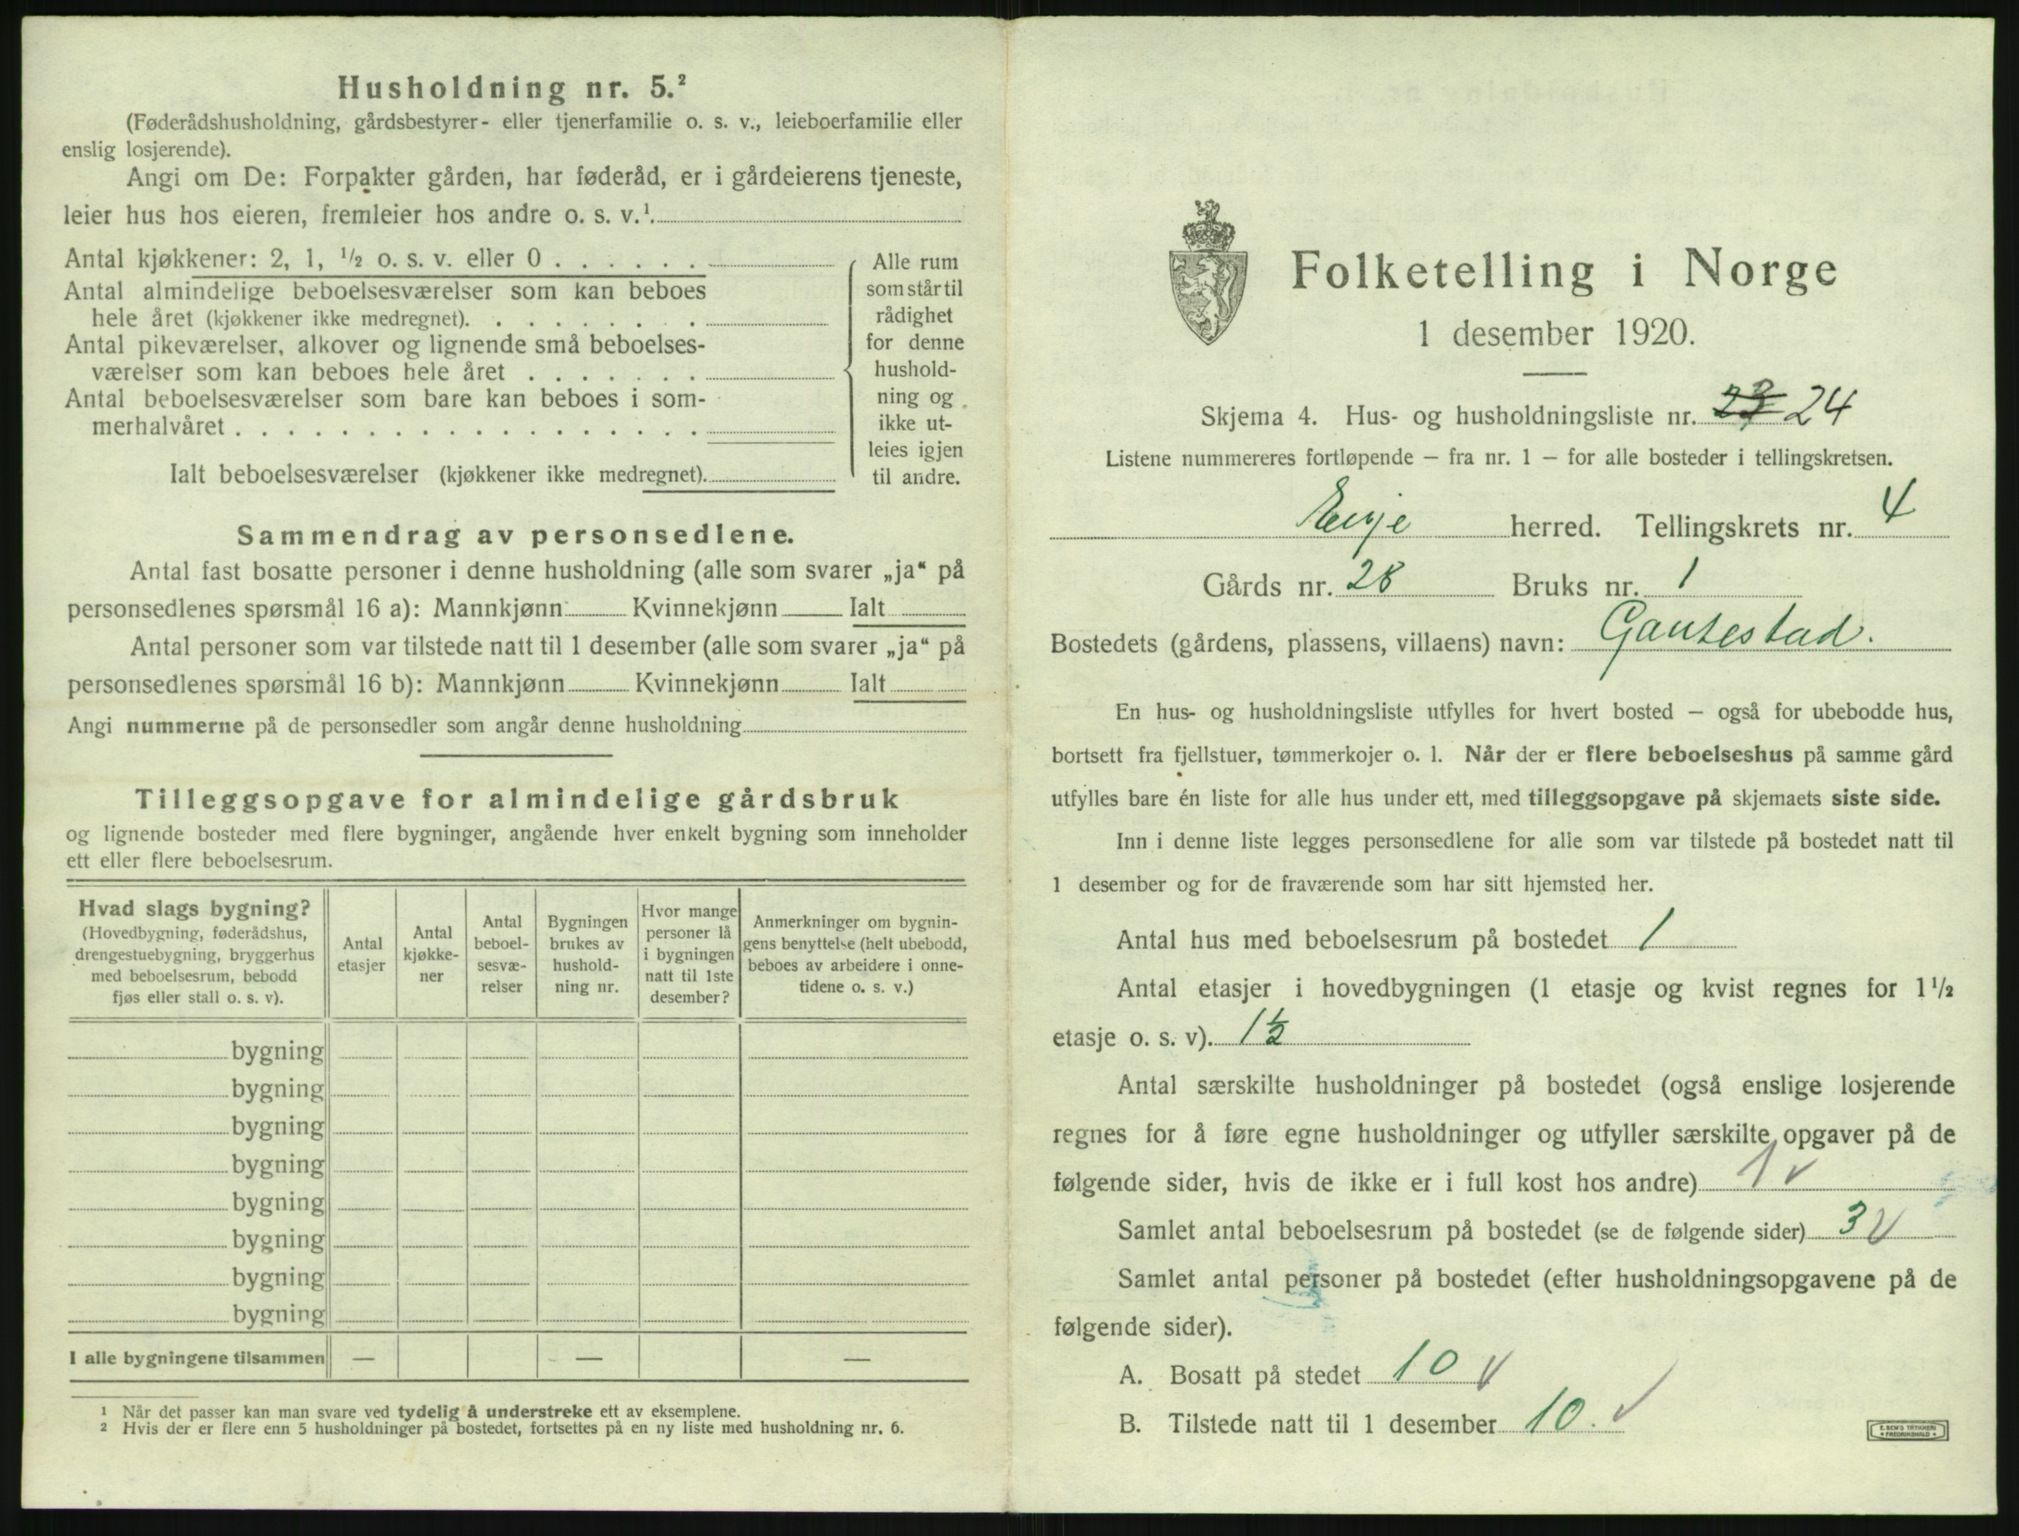 Husholdning nr. 5.²
(Føderådshusholdning, gårdsbestyrer- eller tjenerfamilie o. s. v., leieboerfamilie eller
enslig losjerende).
Angi om De: Forpakter gården, har føderåd, er i gårdeierens tjeneste,
leier hus hos eieren, fremleier hos andre o. s. v.¹
Antal kjøkkener: 2, 1, ½ o. s. v. eller 0 . . . . . .
Antal almindelige beboelsesværelser som kan beboes
hele året (kjøkkener ikke medregnet). . . . . . . . .
Antal pikeværelser, alkover og lignende små beboelses-
værelser som kan beboes hele året . . . . . . .
Antal beboelsesværelser som bare kan beboes i som-
merhalvåret . . . . . . . . . . . . . . . . . .
Ialt beboelsesværelser (kjøkkener ikke medregnet).
Alle rum
som står til
rådighet
for denne
hushold-
ning og
ikke ut-
leies igjen
til andre.
Sammendrag av personsedlene.
Antal fast bosatte personer i denne husholdning (alle som svarer „ja“ på
personsedlenes spørsmål 16 a): Mannkjønn Kvinnekjønn Ialt
Antal personer som var tilstede natt til 1 desember (alle som svarer „ja“ på
personsedlenes spørsmål 16 b): Mannkjønn Kvinnekjønn Ialt
Angi nummerne på de personsedler som angår denne husholdning
Tilleggsopgave for almindelige gårdsbruk
og lignende bosteder med flere bygninger, angående hver enkelt bygning som inneholder
ett eller flere beboelsesrum.
Hvad slags bygning?
(Hovedbygning, føderådshus,
drengestuebygning, bryggerhus
med beboelsesrum, bebodd
fjøs eller stall o. s. v).
Antal
etasjer
Antal
kjøkke-
ner
Antal
beboel-
sesvæ-
relser
Bygningen
brukes av
hushold-
ning nr.
Hvor mange
personer lå
i bygningen
natt til 1ste
desember?
Anmerkninger om bygnin-
gens benyttelse (helt ubebodd,
beboes av arbeidere i onne-
tidene o. s. v.)
bygning
bygning
bygning
bygning
bygning
bygning
bygning
bygning
I alle bygningene tilsammen — — —
¹ Når det passer kan man svare ved tydelig å understreke ett av eksemplene.
² Hvis der er flere enn 5 husholdninger på bostedet, fortsettes på en ny liste med husholdning nr. 6.
Folketelling i Norge
1 desember 1920.
Skjema 4. Hus- og husholdningsliste nr. 23 24
Listene nummereres fortløpende — fra nr. 1 — for alle bosteder i tellingskretsen.
Evje herred. Tellingskrets nr. 4
Gårds nr. 28 Bruks nr. 1
Bostedets (gårdens, plassens, villaens) navn: Gautestad.
En hus- og husholdningsliste utfylles for hvert bosted — også for ubebodde hus,
bortsett fra fjellstuer, tømmerkojer o. l. Når der er flere beboelseshus på samme gård
utfylles bare én liste for alle hus under ett, med tilleggsopgave på skjemaets siste side.
Inn i denne liste legges personsedlene for alle som var tilstede på bostedet natt til
1 desember og for de fraværende som har sitt hjemsted her.
Antal hus med beboelsesrum på bostedet 1
Antal etasjer i hovedbygningen (1 etasje og kvist regnes for 1½
etasje o. s. v). 1½
Antal særskilte husholdninger på bostedet (også enslige losjerende
regnes for å føre egne husholdninger og utfyller særskilte opgaver på de
følgende sider, hvis de ikke er i full kost hos andre) 1 ✓
Samlet antal beboelsesrum på bostedet (se de følgende sider) 3 ✓
Samlet antal personer på bostedet (efter husholdningsopgavene på de
følgende sider).
A. Bosatt på stedet 10 ✓
B. Tilstede natt til 1 desember 10. ✓